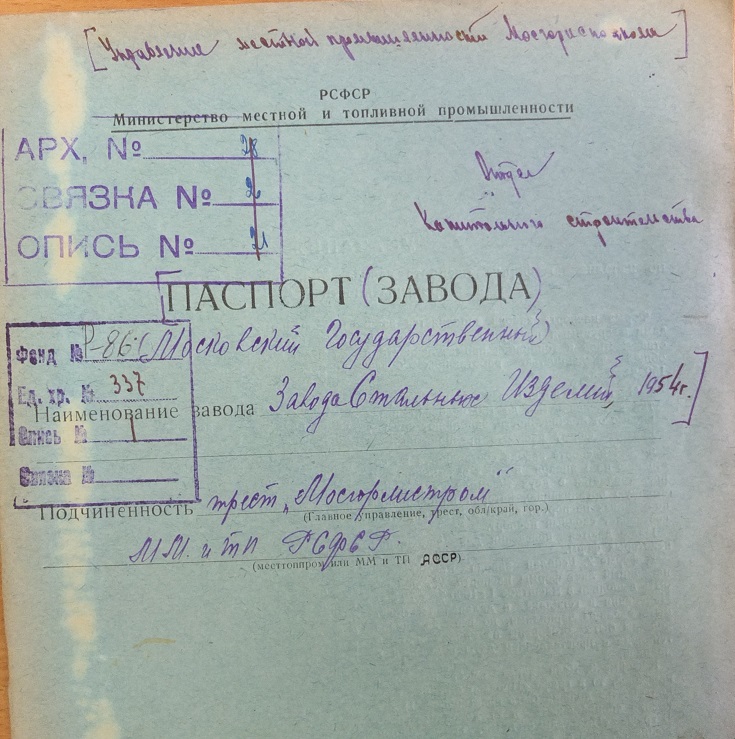 [Управление местной промышленности Мосгорисполкома]
РСФСР
Министерство местной и топливной промышленности
АРХ, № 28
СВЯЗКА № 2
ОПИСЬ № 21
Отдел
Капитального строительства
[ПАСПОРТ (ЗАВОДА)
Фонд № Р-861
Московский Государственный
Ед. хр. № 337
Наименование завода Завода Стальных Изделий, 1954г.]
Опись № 1
Связка №
Подчиненность трест „Мосгорместпром"
(Главное управление, трест, обл/край, гор.)
ММ. и ТП РСФСР.
(местоппром или ММ и ТП АССР)